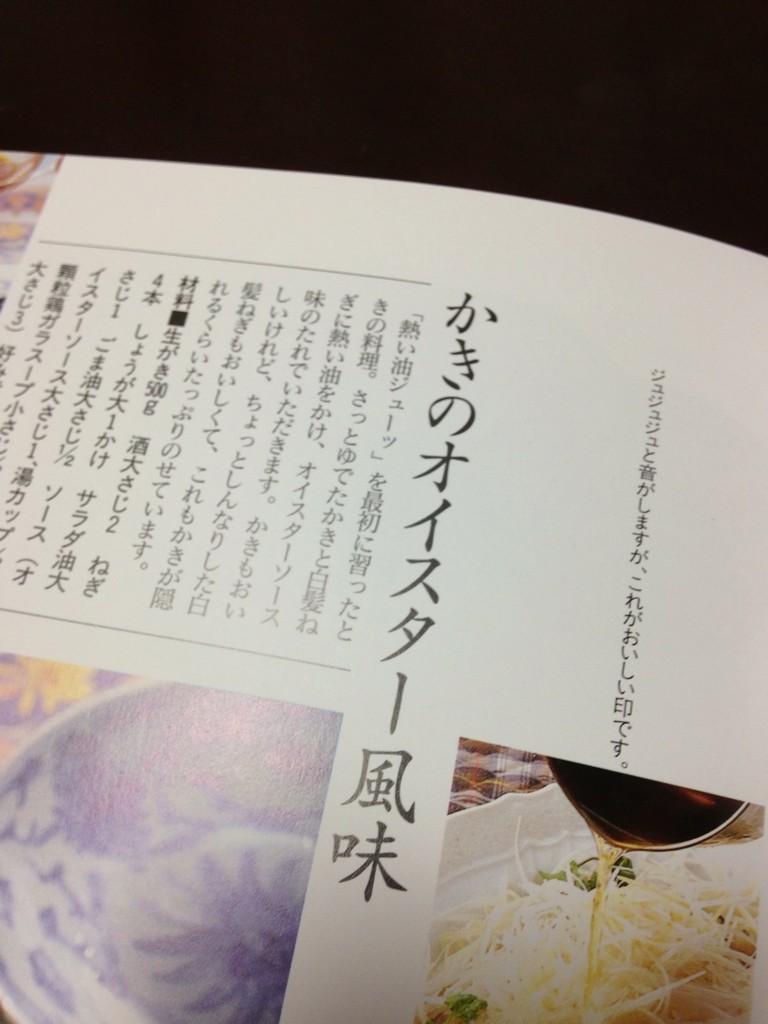 ジュジュジュと音がしますが、これがおいしい印です。
かきのオイスター風味
「熱い油ジューッ」を最初に習ったと
きの料理。さっとゆでたかきと白髪ね
ぎに熱い油をかけ、オイスターソース
味のたれでいただきます。かきもおい
しいけれど、ちょっとしんなりした白
髪ねぎもおいしくて、これもかきが隠
れるくらいたっぷりのせています。
材料■生がき500g 酒大さじ2 ねぎ
4本 しょうが大1かけ サラダ油大
さじ1 ごま油大さじ1/2 ソース(オ
イスターソース大さじ1、湯カップ
顆粒鶏ガラスープ小さじ
大さじ3) 好み